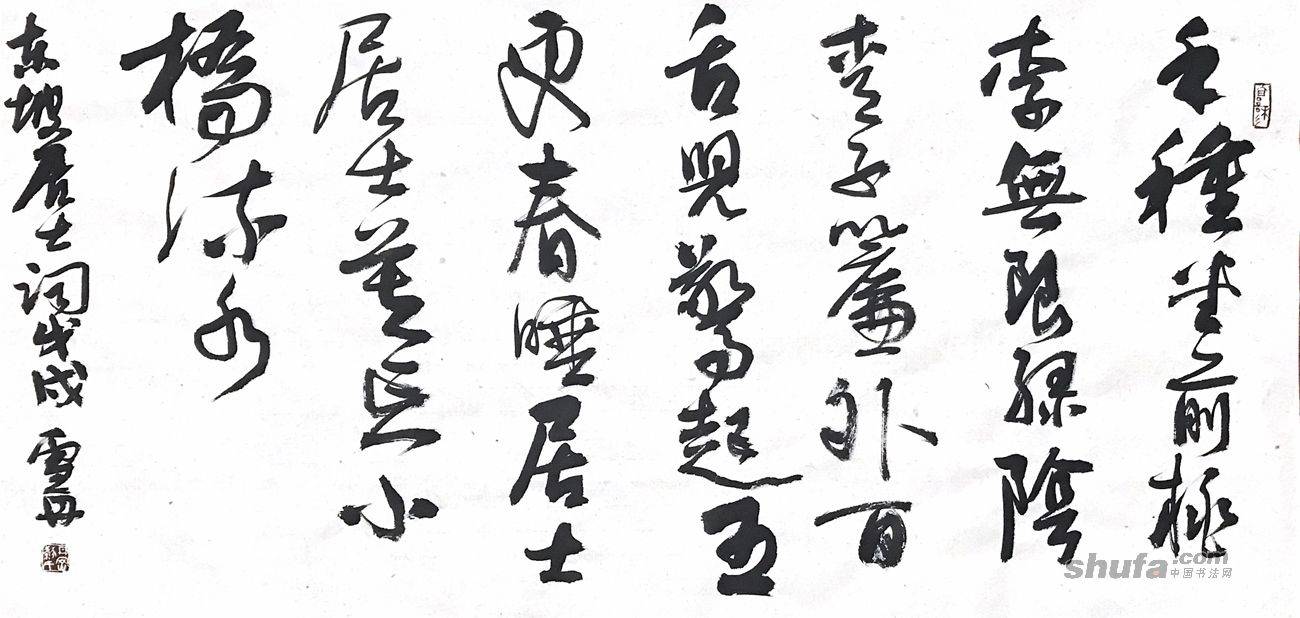 手種堂前桃
李無限綠陰
青子簾外百
舌兒驚起五
更春睡居士
居士莫忘小
橋流水
东坡居士词戊戌 雪
shufa.com
中国书法网